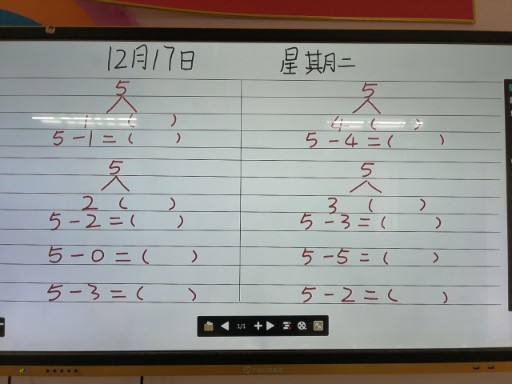 12月17日 星期二
5 5
1 ( ) 4 ( )
5-1=( ) 5-4=( )
5 5
2 ( ) 3 ( )
5-2=( ) 5-3=( )
5-0=( ) 5-5=( )
5-3=( ) 5-2=( )
1/1